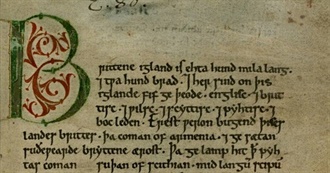 Brittene igland is ehta hund mila lang.
⁊ twa hund brad. ⁊ her sind on þis
iglande fif geþeode. englisc. ⁊ brit
tisc. ⁊ wilsc. ⁊ scyttisc. ⁊ pyhtisc. ⁊
boc leden. Erest weron bugend þises
landes brittes. þa coman of armenia. ⁊ gesætan
suðewearde bryttene ærost. Þa gelamp hit ꝥ pyh
tas coman suþan of scithian. mid langū scipū